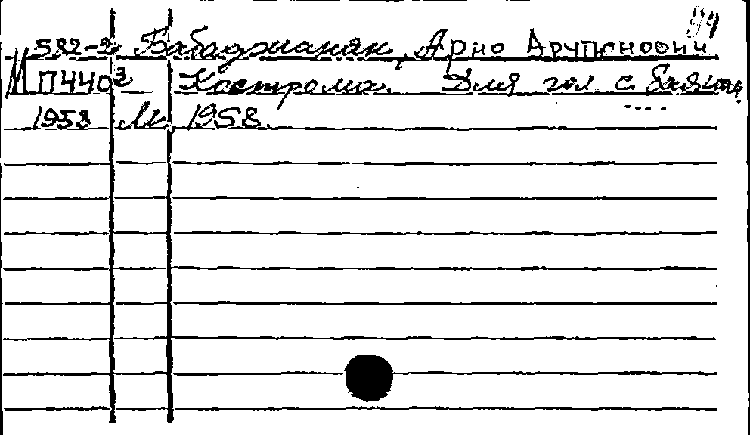 94
582-2 Бабаджанян, Арно Арутюнович
М П440³ Кострома. Для гол с баяна,
1958 М., 1958.